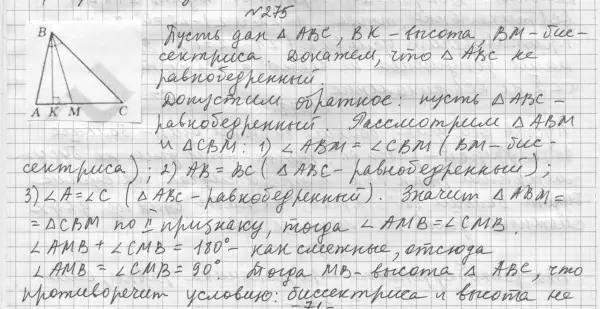 №275
B
Пусть дан △ ABC, BK - высота, BM - бис-
сектриса. Докажем, что △ ABC не
равнобедренный.
A K M C
Допустим обратное: пусть △ ABC -
равнобедренный. Рассмотрим △ ABM
и △CBM: 1) ∠ABM = ∠CBM (BM - бис-
сектриса); 2) AB = BC (△ABC - равнобедренный);
3) ∠A = ∠C (△ABC - равнобедренный). Значит △ABM =
= △CBM по II признаку, тогда ∠AMB = ∠CMB.
∠AMB + ∠CMB = 180° - как смежные, отсюда
∠AMB = ∠CMB = 90°. Тогда MB - высота △ ABC, что
противоречит условию: биссектриса и высота не
-71-